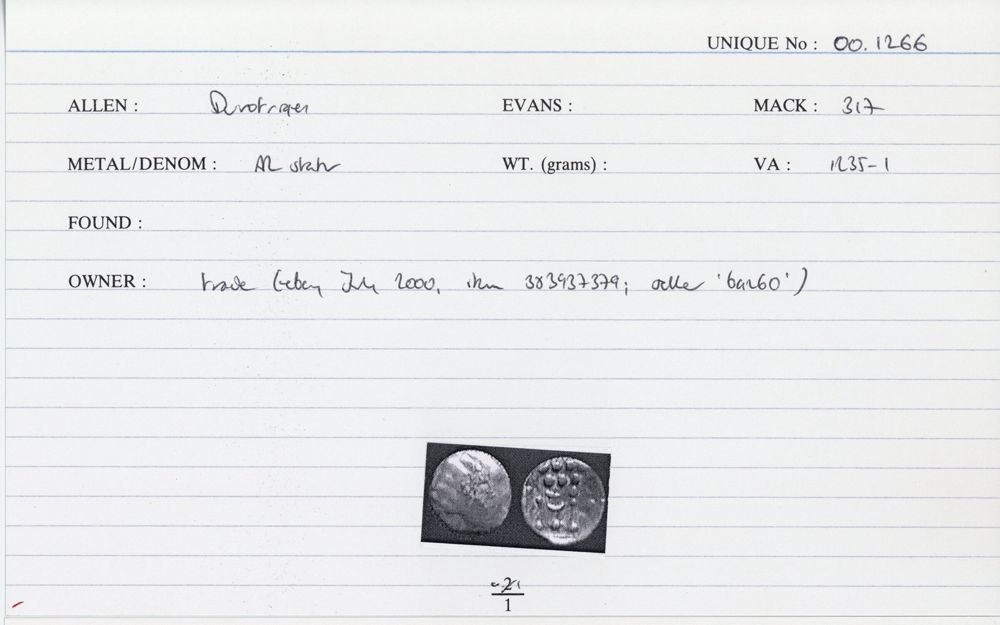 UNIQUE No : 00.1266
ALLEN : Durotriges EVANS : MACK : 317
METAL/DENOM : AR stater WT. (grams) : VA : 1235-1
FOUND :
OWNER : trade (eBay July 2000, item 383937379; seller 'bar60')
2
1